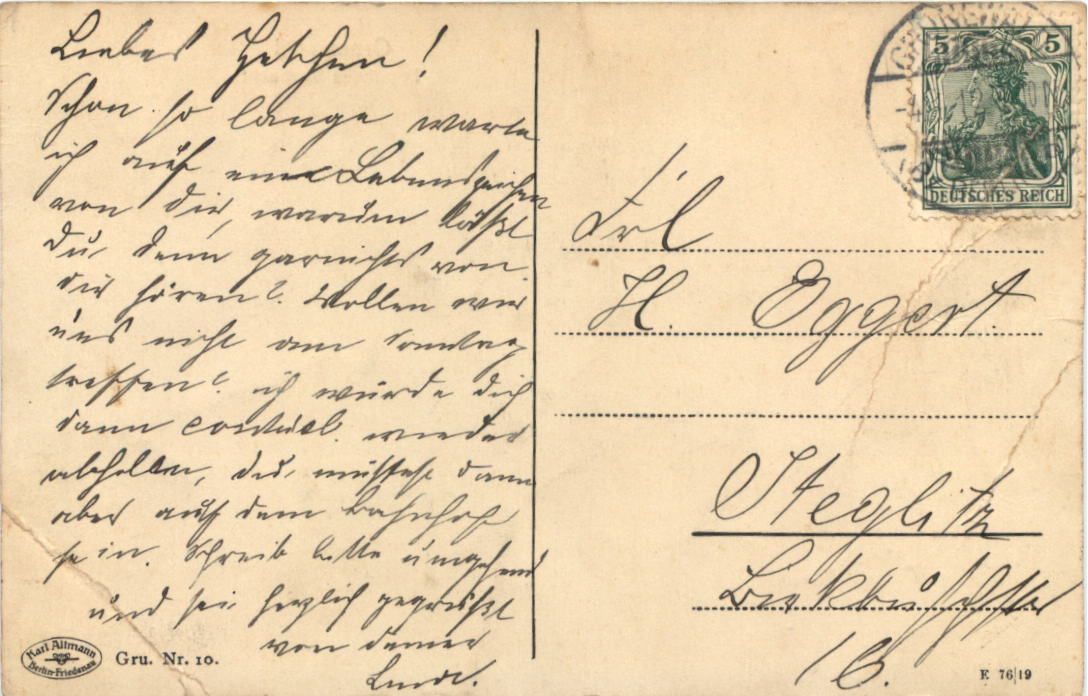 Liebes Hetchen!
Schon so lange warte
ich auf ein Lebenszeichen
von dir, warum läßt
Du denn garnichts von
dir hören? Wollen wir
uns nicht am Sonntag
treffen? ich würde dich
dann eventuel. wieder
abhollen, du müßtest dann
aber auf dem Bahnhof
sein. Schreib bitte umgehend
und sei herzlich gegrüßt
von deiner
Karl Altmann
Berlin-Friedenau
Gru. Nr. 10.
5 5
DEUTSCHES REICH
Frl
H. Eggert.
Steglitz
Birkbuschstr
16.
E 76|19